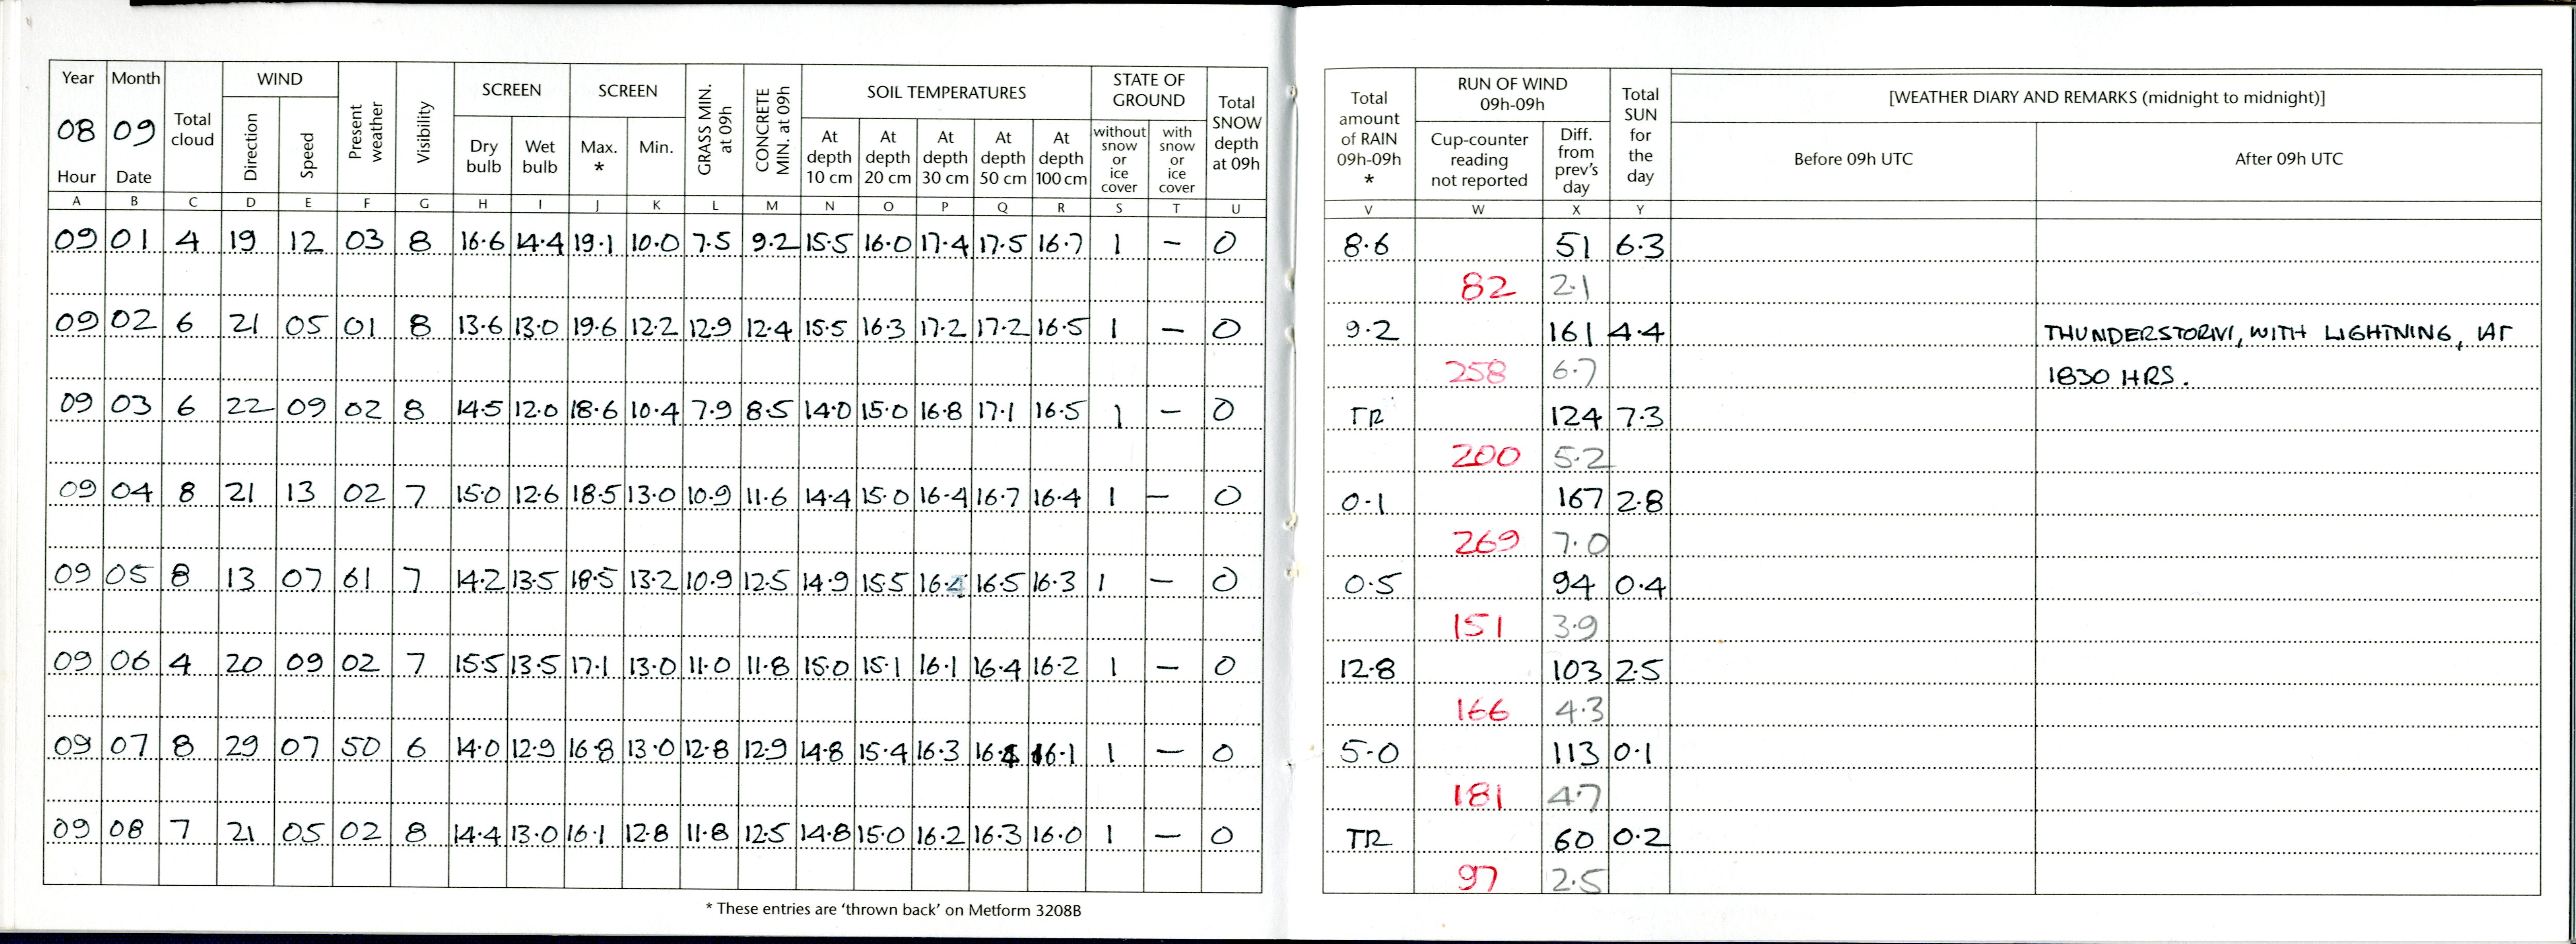 Year Month Total cloud WIND Present weather Visibility SCREEN SCREEN GRASS MIN. at 09h CONCRETE MIN. at 09h SOIL TEMPERATURES STATE OF GROUND Total SNOW depth at 09h
08 09 Direction Speed Dry bulb Wet bulb Max. * Min. At depth 10 cm At depth 20 cm At depth 30 cm At depth 50 cm At depth 100 cm without snow or ice cover with snow or ice cover
Hour Date
A B C D E F G H I J K L M N O P Q R S T U
09 01 4 19 12 03 8 16.6 14.4 19.1 10.0 7.5 9.2 15.5 16.0 17.4 17.5 16.7 1 – 0
09 02 6 21 05 01 8 13.6 13.0 19.6 12.2 12.9 12.4 15.5 16.3 17.2 17.2 16.5 1 – 0
09 03 6 22 09 02 8 14.5 12.0 18.6 10.4 7.9 8.5 14.0 15.0 16.8 17.1 16.5 1 – 0
09 04 8 21 13 02 7 15.0 12.6 18.5 13.0 10.9 11.6 14.4 15.0 16.4 16.7 16.4 1 – 0
09 05 8 13 07 61 7 14.2 13.5 18.5 13.2 10.9 12.5 14.9 15.5 16.4 16.5 16.3 1 – 0
09 06 4 20 09 02 7 15.5 13.5 17.1 13.0 11.0 11.8 15.0 15.1 16.1 16.4 16.2 1 – 0
09 07 8 29 07 50 6 14.0 12.9 16.8 13.0 12.8 12.9 14.8 15.4 16.3 16.4 16.1 1 – 0
09 08 7 21 05 02 8 14.4 13.0 16.1 12.8 11.8 12.5 14.8 15.0 16.2 16.3 16.0 1 – 0
* These entries are 'thrown back' on Metform 3208B
Total amount of RAIN 09h-09h * RUN OF WIND 09h-09h Total SUN for the day [WEATHER DIARY AND REMARKS (midnight to midnight)]
Cup-counter reading not reported Diff. from prev's day Before 09h UTC After 09h UTC
V W X Y
8.6 51 6.3
82 2.1
9.2 161 4.4 THUNDERSTORM, WITH LIGHTNING, AT
258 6.7 1830 HRS.
TR 124 7.3
200 5.2
0.1 167 2.8
269 7.0
0.5 94 0.4
151 3.9
12.8 103 2.5
166 4.3
5.0 113 0.1
181 4.7
TR 60 0.2
97 2.5